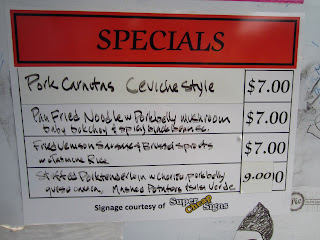 SPECIALS
Pork Carnitas Ceviche Style $7.00
Pan Fried Noodle w Porkbelly mushroom $7.00
baby bokchoy & spicy
Fried Venison Sausage & Brussel Sprouts $7.00
w Jasmine Rice
Stuffed Porktenderloin w chorizo, porkbelly 9.00
queso , Mashed Potatoes & Salsa Verde
Signage courtesy of Super Cheap Signs